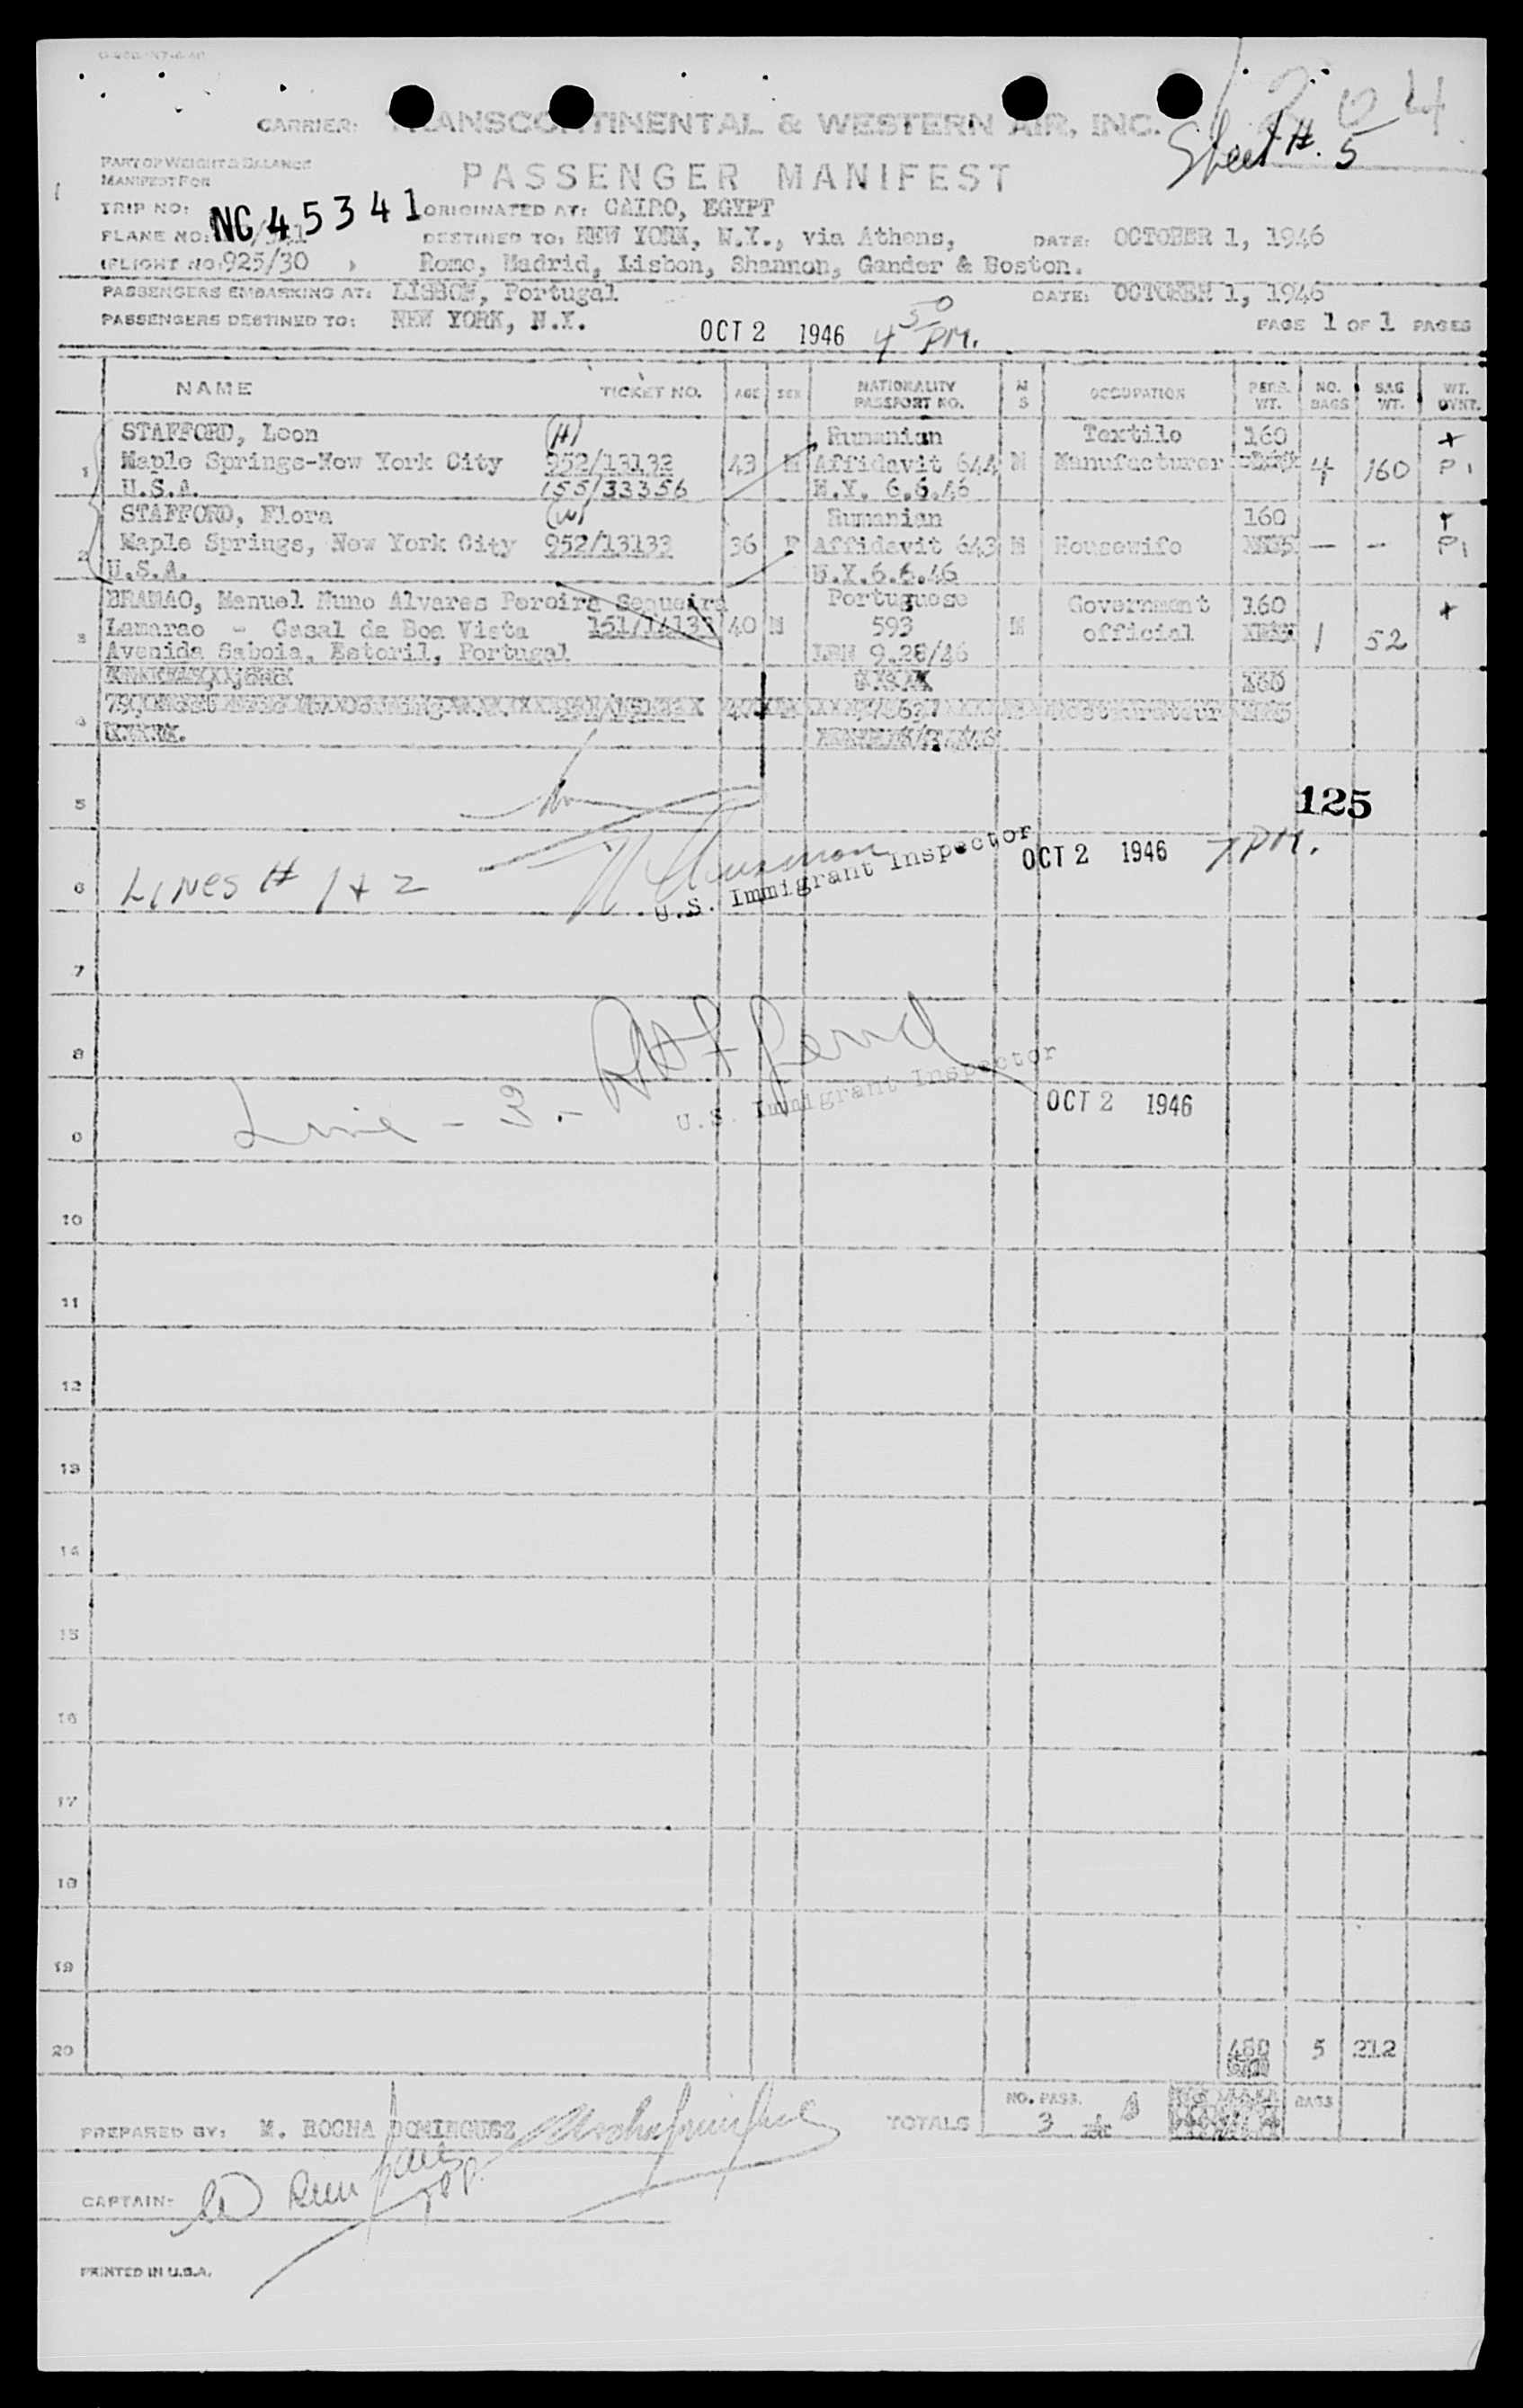 CARRIER: TRANSCONTINENTAL & WESTERN AIR, INC.
Sheet #. 5
PART OF WEIGHT & BALANCE
MANIFEST FOR
PASSENGER MANIFEST
TRIP NO: NC 45341 ORIGINATED AT: CAIRO, EGYPT
PLANE NO: DESTINED TO: NEW YORK, N.Y., via Athens, DATE: OCTOBER 1, 1946
(FLIGHT NO. 925/30 ) Rome, Madrid, Lisbon, Shannon, Gander & Boston.
PASSENGERS EMBARKING AT: LISBON, Portugal DATE: OCTOBER 1, 1946
PASSENGERS DESTINED TO: NEW YORK, N.Y. OCT 2 1946 4 50 PM. PAGE 1 OF 1 PAGES
NAME TICKET NO. AGE SEX NATIONALITY PASSPORT NO. M S OCCUPATION PERS. WT. NO. BAGS BAG WT. WT. OVNT.
STAFFORD, Leon (H) Rumanian Textile 160 +
1 Maple Springs-New York City 952/13132 43 M Affidavit 644 M Manufacturer 4 160 P1
U.S.A. 155/33356 N.Y. 6.6.46
STAFFORD, Flora (W) Rumanian 160 +
2 Maple Springs, New York City 952/13133 36 F Affidavit 643 M Housewife — — P1
U.S.A. N.Y.6.6.46
BRAMAO, Manuel Nuno Alvares Pereira Sequeira Portuguese Government 160 +
3 Lamarao - Casal da Boa Vista 40 M 593 M official 1 52
Avenida Saboia, Estoril, Portugal LBN 9.28/46
4
5 125
6 LINES # 1 + 2 U.S. Immigrant Inspector OCT 2 1946 7 PM.
7
8
9 Line - 3. - U.S. Immigrant Inspector OCT 2 1946
10
11
12
13
14
15
16
17
18
19
20 480 5 212
PREPARED BY: M. ROCHA DOMINGUEZ TOTALS NO. PASS. 3 BAGS
CAPTAIN:
PRINTED IN U.S.A.